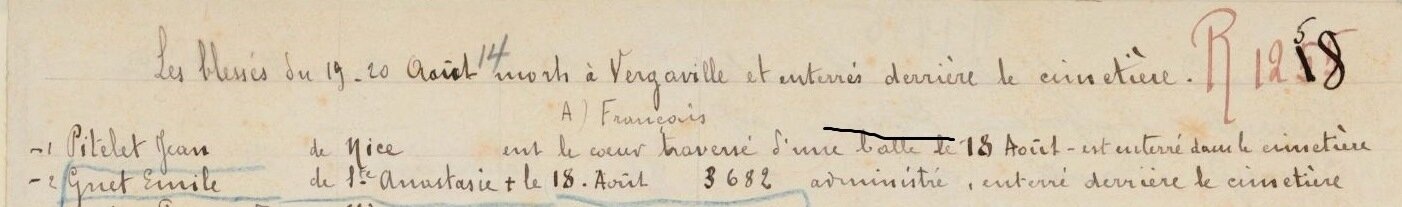 Les blessés du 19-20 Août 14 morts à Vergaville et enterrés derrière le cimetière. R 12 18
A) Français
-1 Pitelet Jean de Nice eut le coeur traversé d'une balle le 18 Août - est enterré dans le cimetière
-2 Guet Emile de Ste Anastasie + le 18. Août 3682 administré, enterré derrière le cimetière